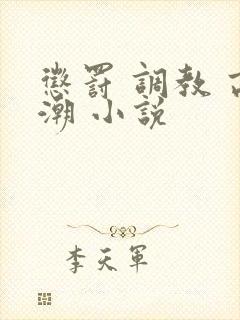 懲罰 調教 高
潮 小說
李天軍